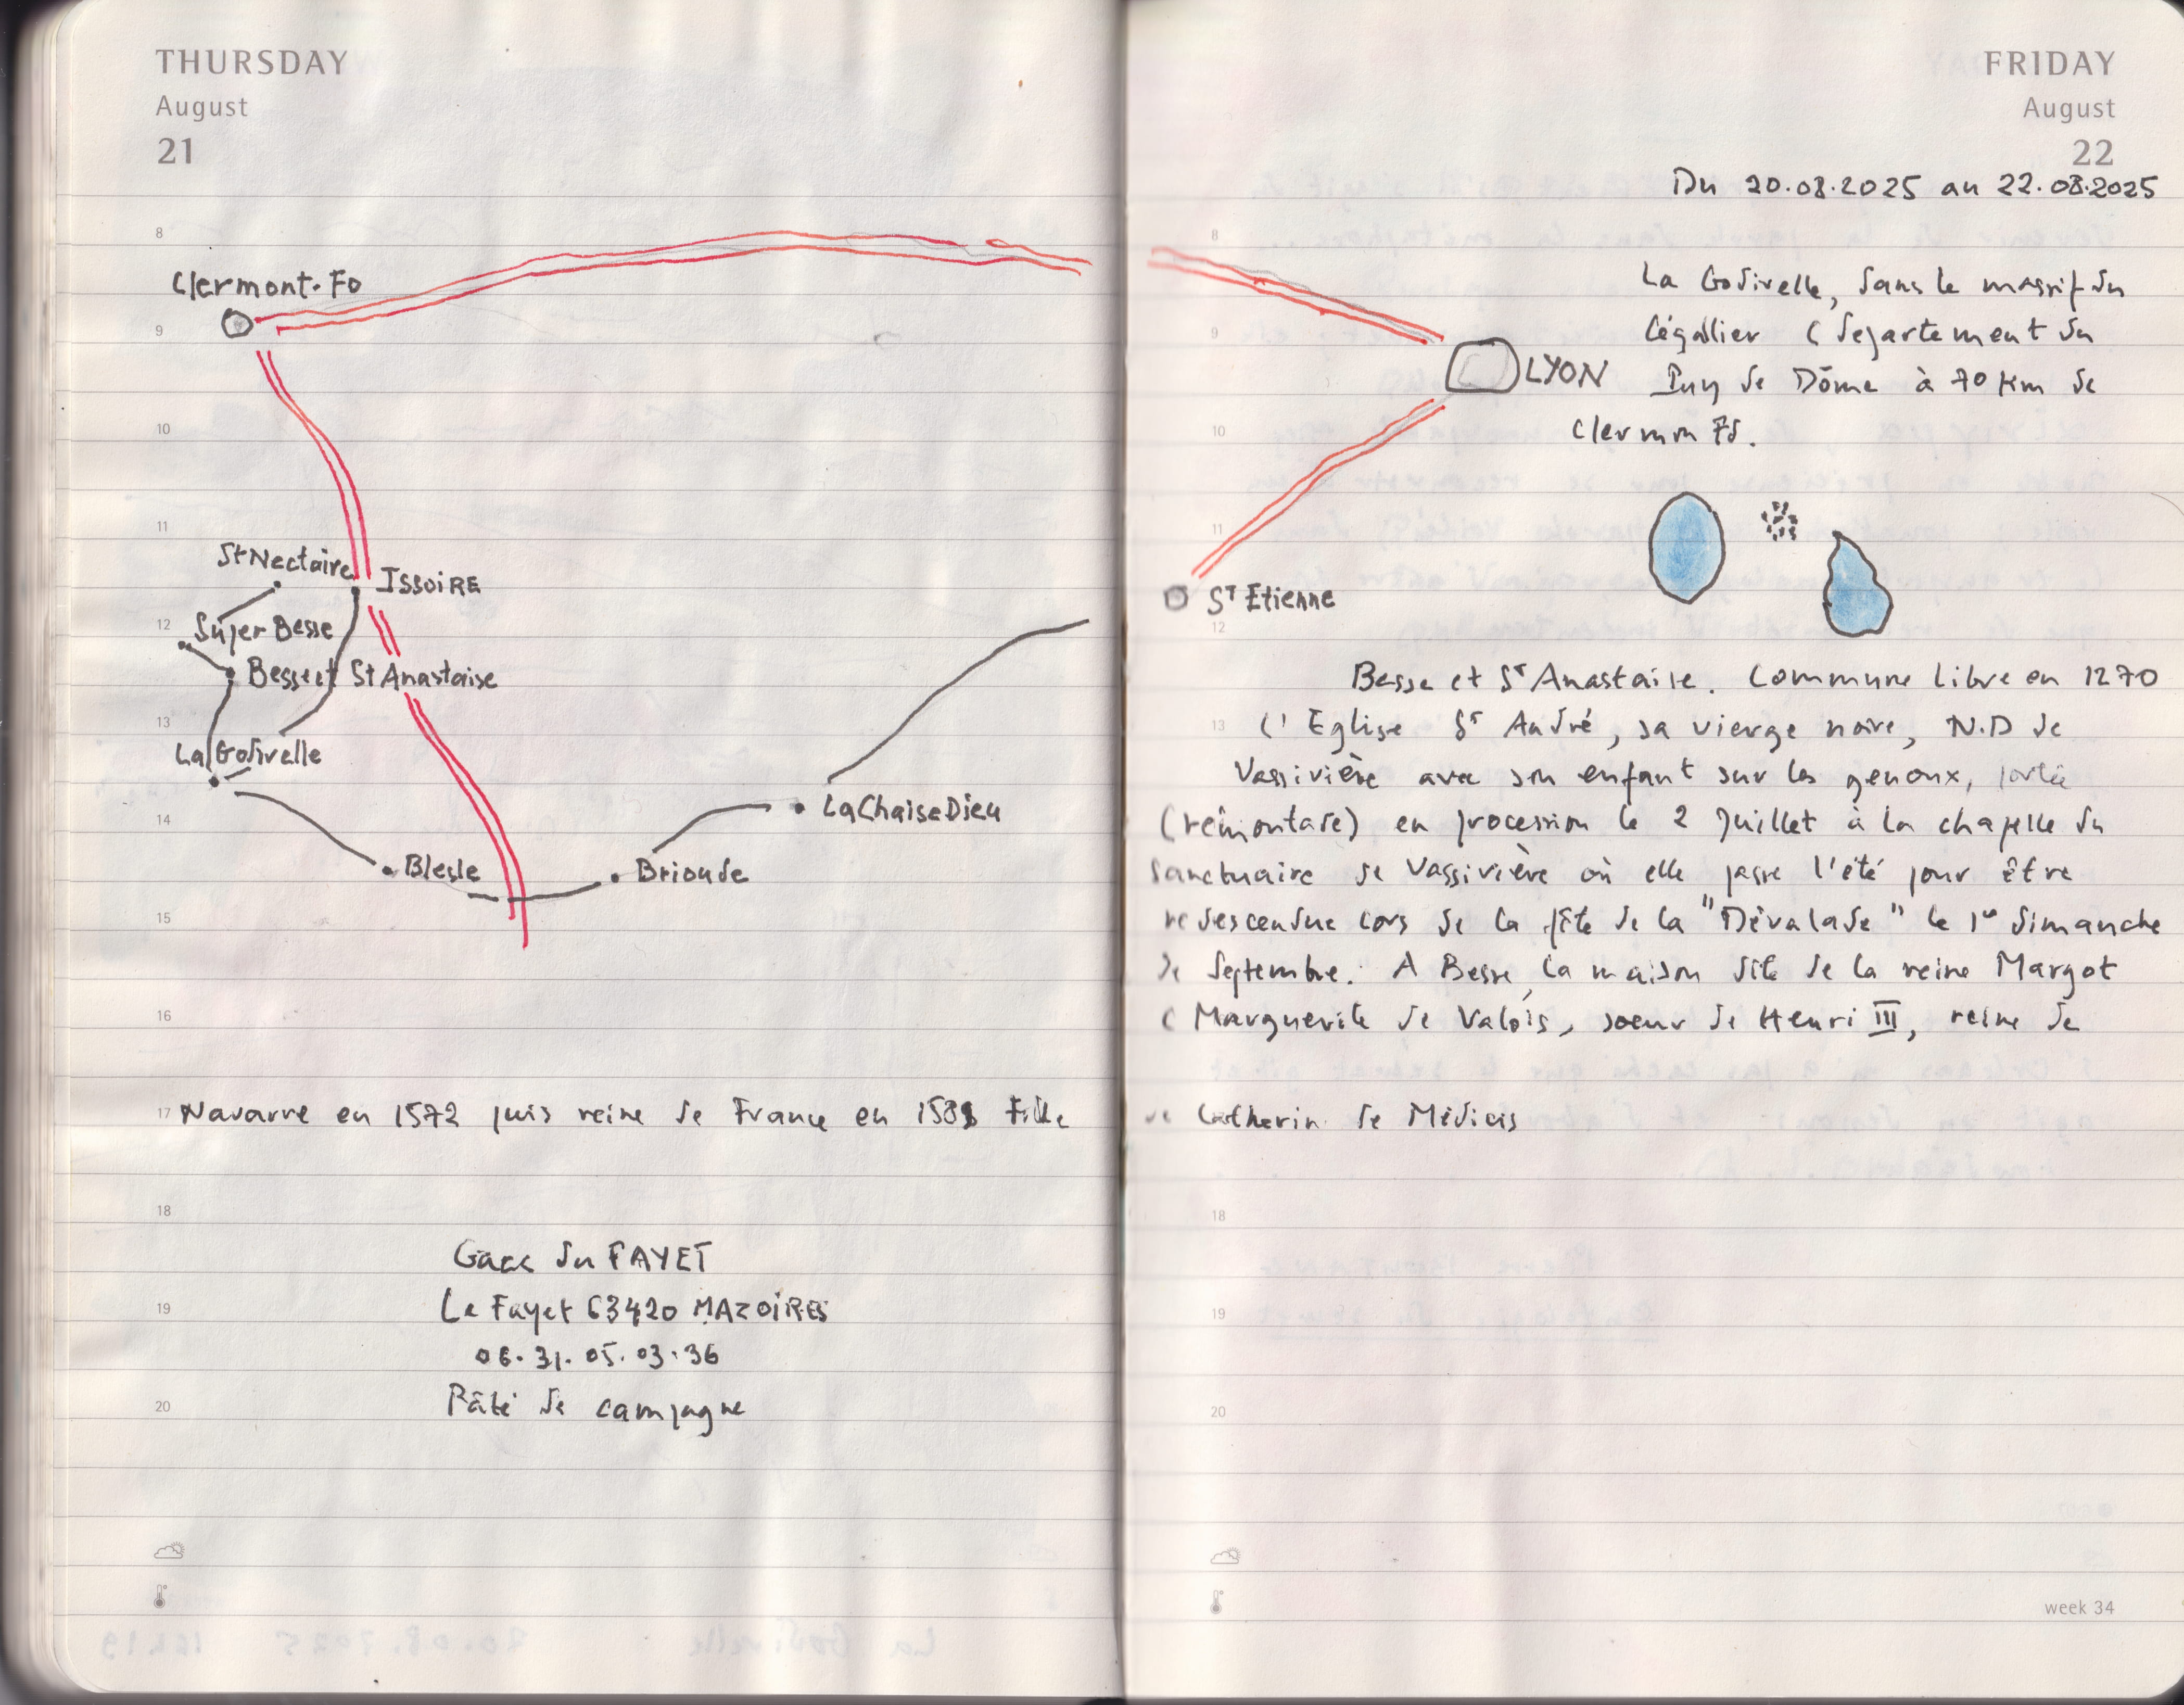 THURSDAY
August
21
8
Clermont. Fd
9
10
11
St Nectaire
ISSOIRE
12
Super Besse
Besse et St Anastaise
13
La Godivelle
14
La Chaise Dieu
Blesle
Brioude
15
16
17 Navarre en 1572 puis reine de France en 1589 Fille
18
Gaec du FAYET
19
Le Fayet 63420 MAZOIRES
06.31.05.03.36
20
Pâté de campagne
FRIDAY
August
22
Du 20.08.2025 au 22.08.2025
8
La Godivelle, dans le massif du
9
Cégallier (département du
LYON
Puy de Dôme à 70 km de
10
Clermon Fd.
11
ST Etienne
12
Besse et ST Anastaise. Commune libre en 1270
13
l'Eglise ST André, sa vierge noire, N.D de
Vassivière avec son enfant sur les genoux, portée
(remontade) en procession le 2 Juillet à la chapelle du
sanctuaire de Vassivière où elle passe l'été pour être
redescendue lors de la fête de la "Dévalade" le 1er dimanche
de Septembre. A Besse, la maison dite de la reine Margot
(Marguerite de Valois, soeur de Henri III, reine de
de Catherin de Médicis
18
19
20
week 34